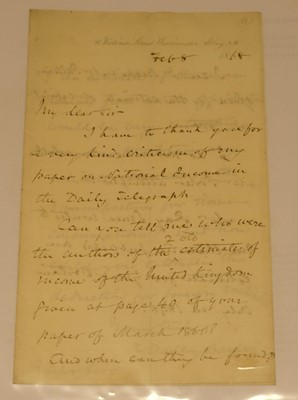 Feb 8 1868
My dear Sir
I have to thank you for
a very kind criticism of my
paper on National Income in
the Daily Telegraph
Can you tell me who were
2 old
the authors of the estimates of
income of the United Kingdom
given at page 40 of your
paper of March 1860?
And when can they be found?